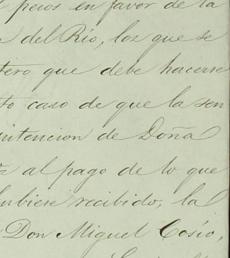 pesos en favor de la
del Río, los que se
tero que debe hacerse
to caso de que la sen
intencion de Doña
al pago de lo que
hubiese recibido, la
Don Miguel Cosío,